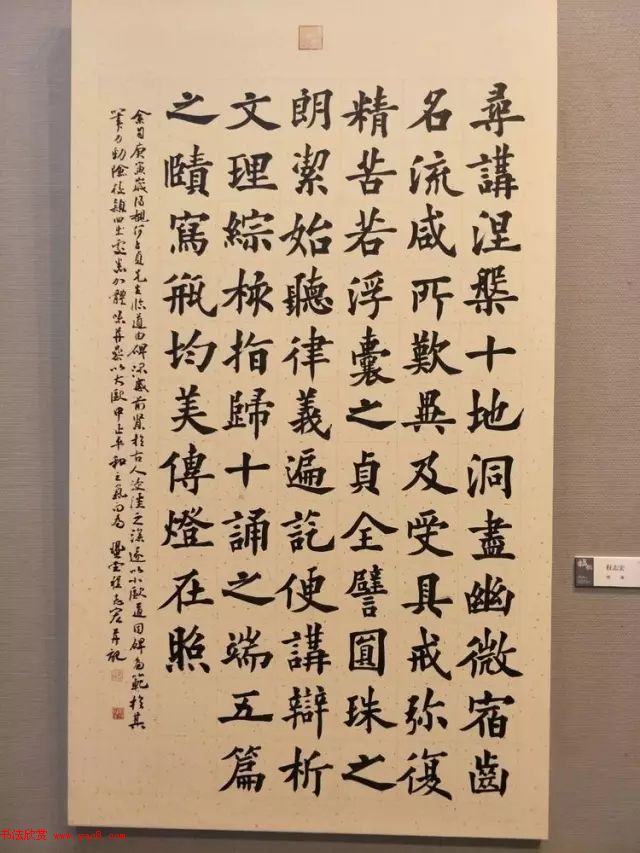 尋講涅槃十地洞盡幽微宿齒
名流咸所歎異及受具戒弥復
精苦若浮囊之貞全譬圓珠之
朗潔始聽律義遍訖便講辯析
文理綜極指歸十誦之端五篇
之賾寫瓶均美傳燈在照
余自庚寅歲得觀何子貞先生臨道因碑深感前賢於古人浸淫之深遂以小歐道因碑為範於其
筆力勁險 四出處悉心體味并參以大歐中正平和之氣而為 程志宏并記
书法欣赏 www.yac8.com